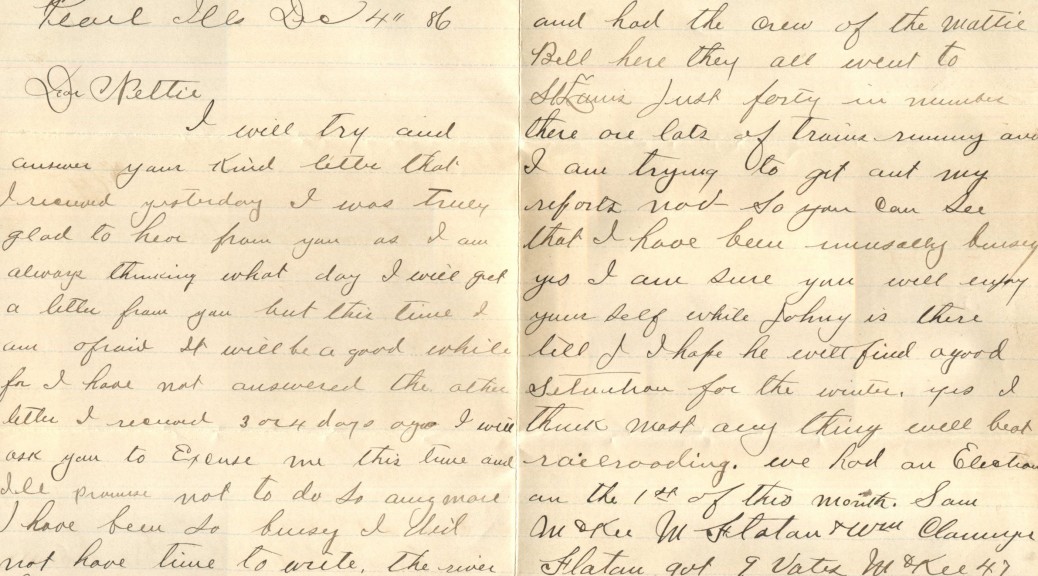 Pearl Ills Dec 4" 86
Dear Nettie
I will try and
answer your Kind letter that
I received yesterday I was truly
glad to hear from you as I am
always thinking what day I will get
a letter from you but this time I
am afraid It will be a good while
for I have not answered the other
letter I received 3 or 4 days ago I will
ask you to Excuse me this time and
I'll promise not to do so any more
I have been so buisey I did
not have time to write. the river
and had the crew of the Mattie
Bell here they all went to
St Louis Just forty in number
there are lots of trains running and
I am trying to get out my
reports now so you can see
that I have been unusally buisey
yes I am sure you will enjoy
your self while Johny is there
tell I hope he will find a good
Situation for the winter. yes I
think most any thing will beat
railroading. we had an Election
on the 1st of this month. Sam
McKee M Flatan & Wm
Flatan got 9 Votes McKee 47